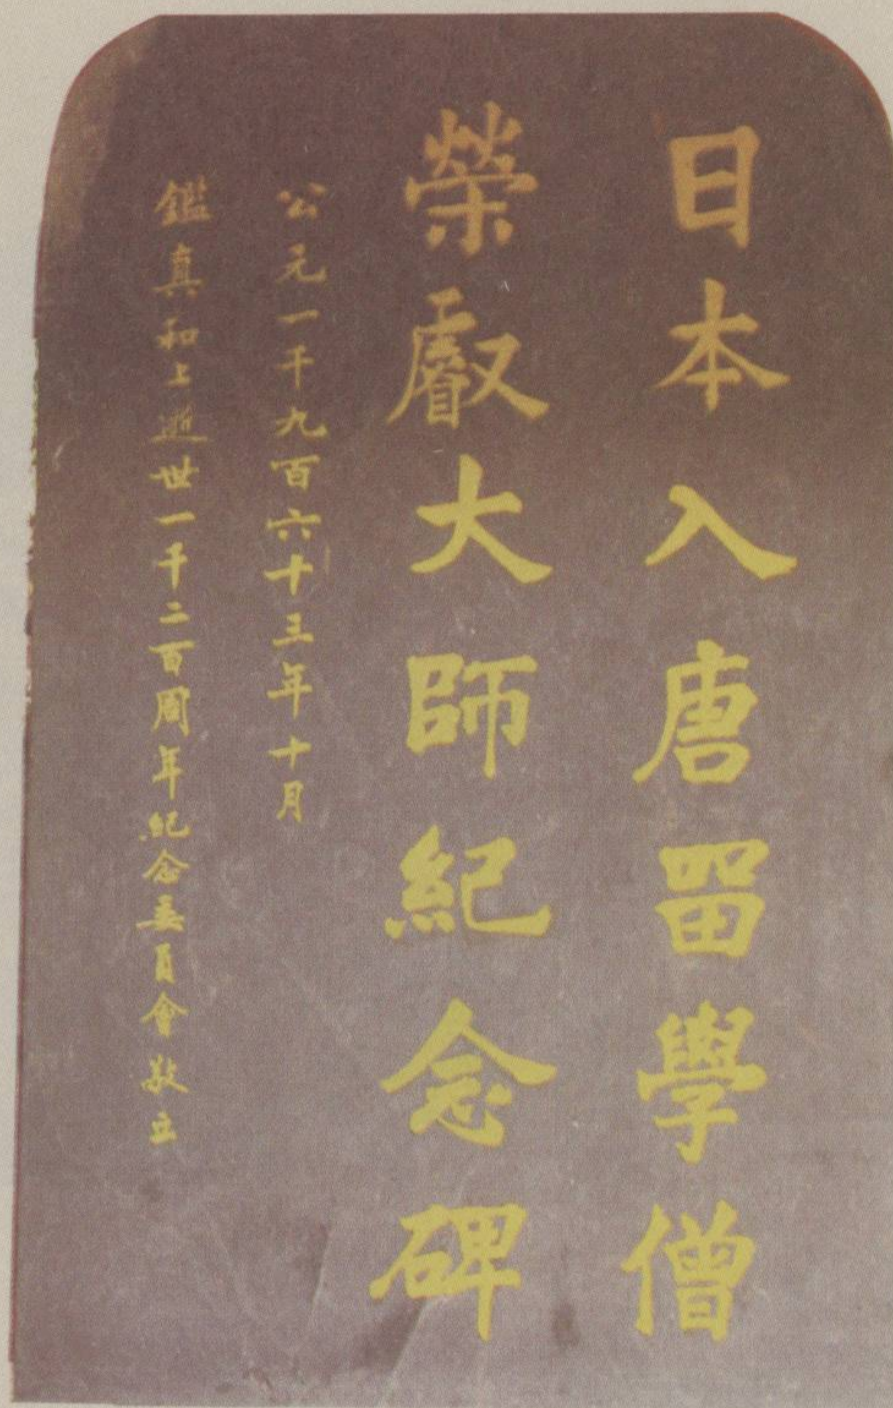 日本入唐留學僧
榮叡大師紀念碑
公元一千九百六十三年十月
鑑真和上逝世一千二百周年紀念委員會敬立